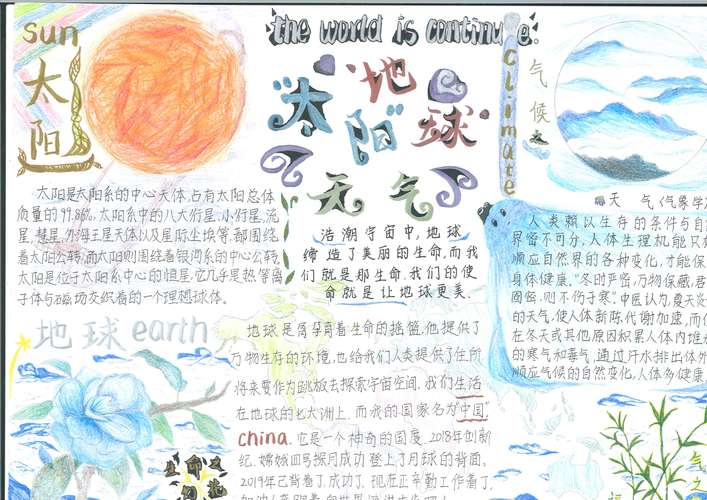 the world is continue.
sun
太阳
"太阳"
"地球"
天气
climate
气候
太阳是太阳系的中心天体,占有太阳总体
质量的99.86%,太阳系中的八大行星,小行星,流
星,彗星,外海王星天体以及星际尘埃等,都围绕
着太阳公转,而太阳则围绕着银河系的中心公转,
太阳是位于太阳系中心的恒星,它几乎是热等离
子体与磁场交织着的一个理想球体.
浩瀚宇宙中,地球
缔造了美丽的生命,而我
们就是那生命,我们的使
命就是让地球更美.
天 气《气象学
人类赖以生存的条件与自
界密不可分,人体生理机能只有
顺应自然界的各种变化,才能保
身体健康."冬时严密,万物保藏,君
固密,则不伤于寒"中医认为,夏天炎
的天气,使人体新陈代谢加速,而
在冬天或其他原因积累人体内堆
的寒气和毒气,通过汗水排出体外
顺应气候的自然变化,人体多健康
地球 earth
地球是孕育着生命的摇篮,他提供了
万物生存的环境,也给我们人类提供了住所
将来要作为跳板去探索宇宙空间,我们生活
在地球的七大洲上,而我的国家名为"中国"
china.它是一个神奇的国度,2018年创新
纪,嫦娥四号探月成功登上了月球的背面,
2019年已背着了成功了,现在正辛勤工作着了,
生命又
气之